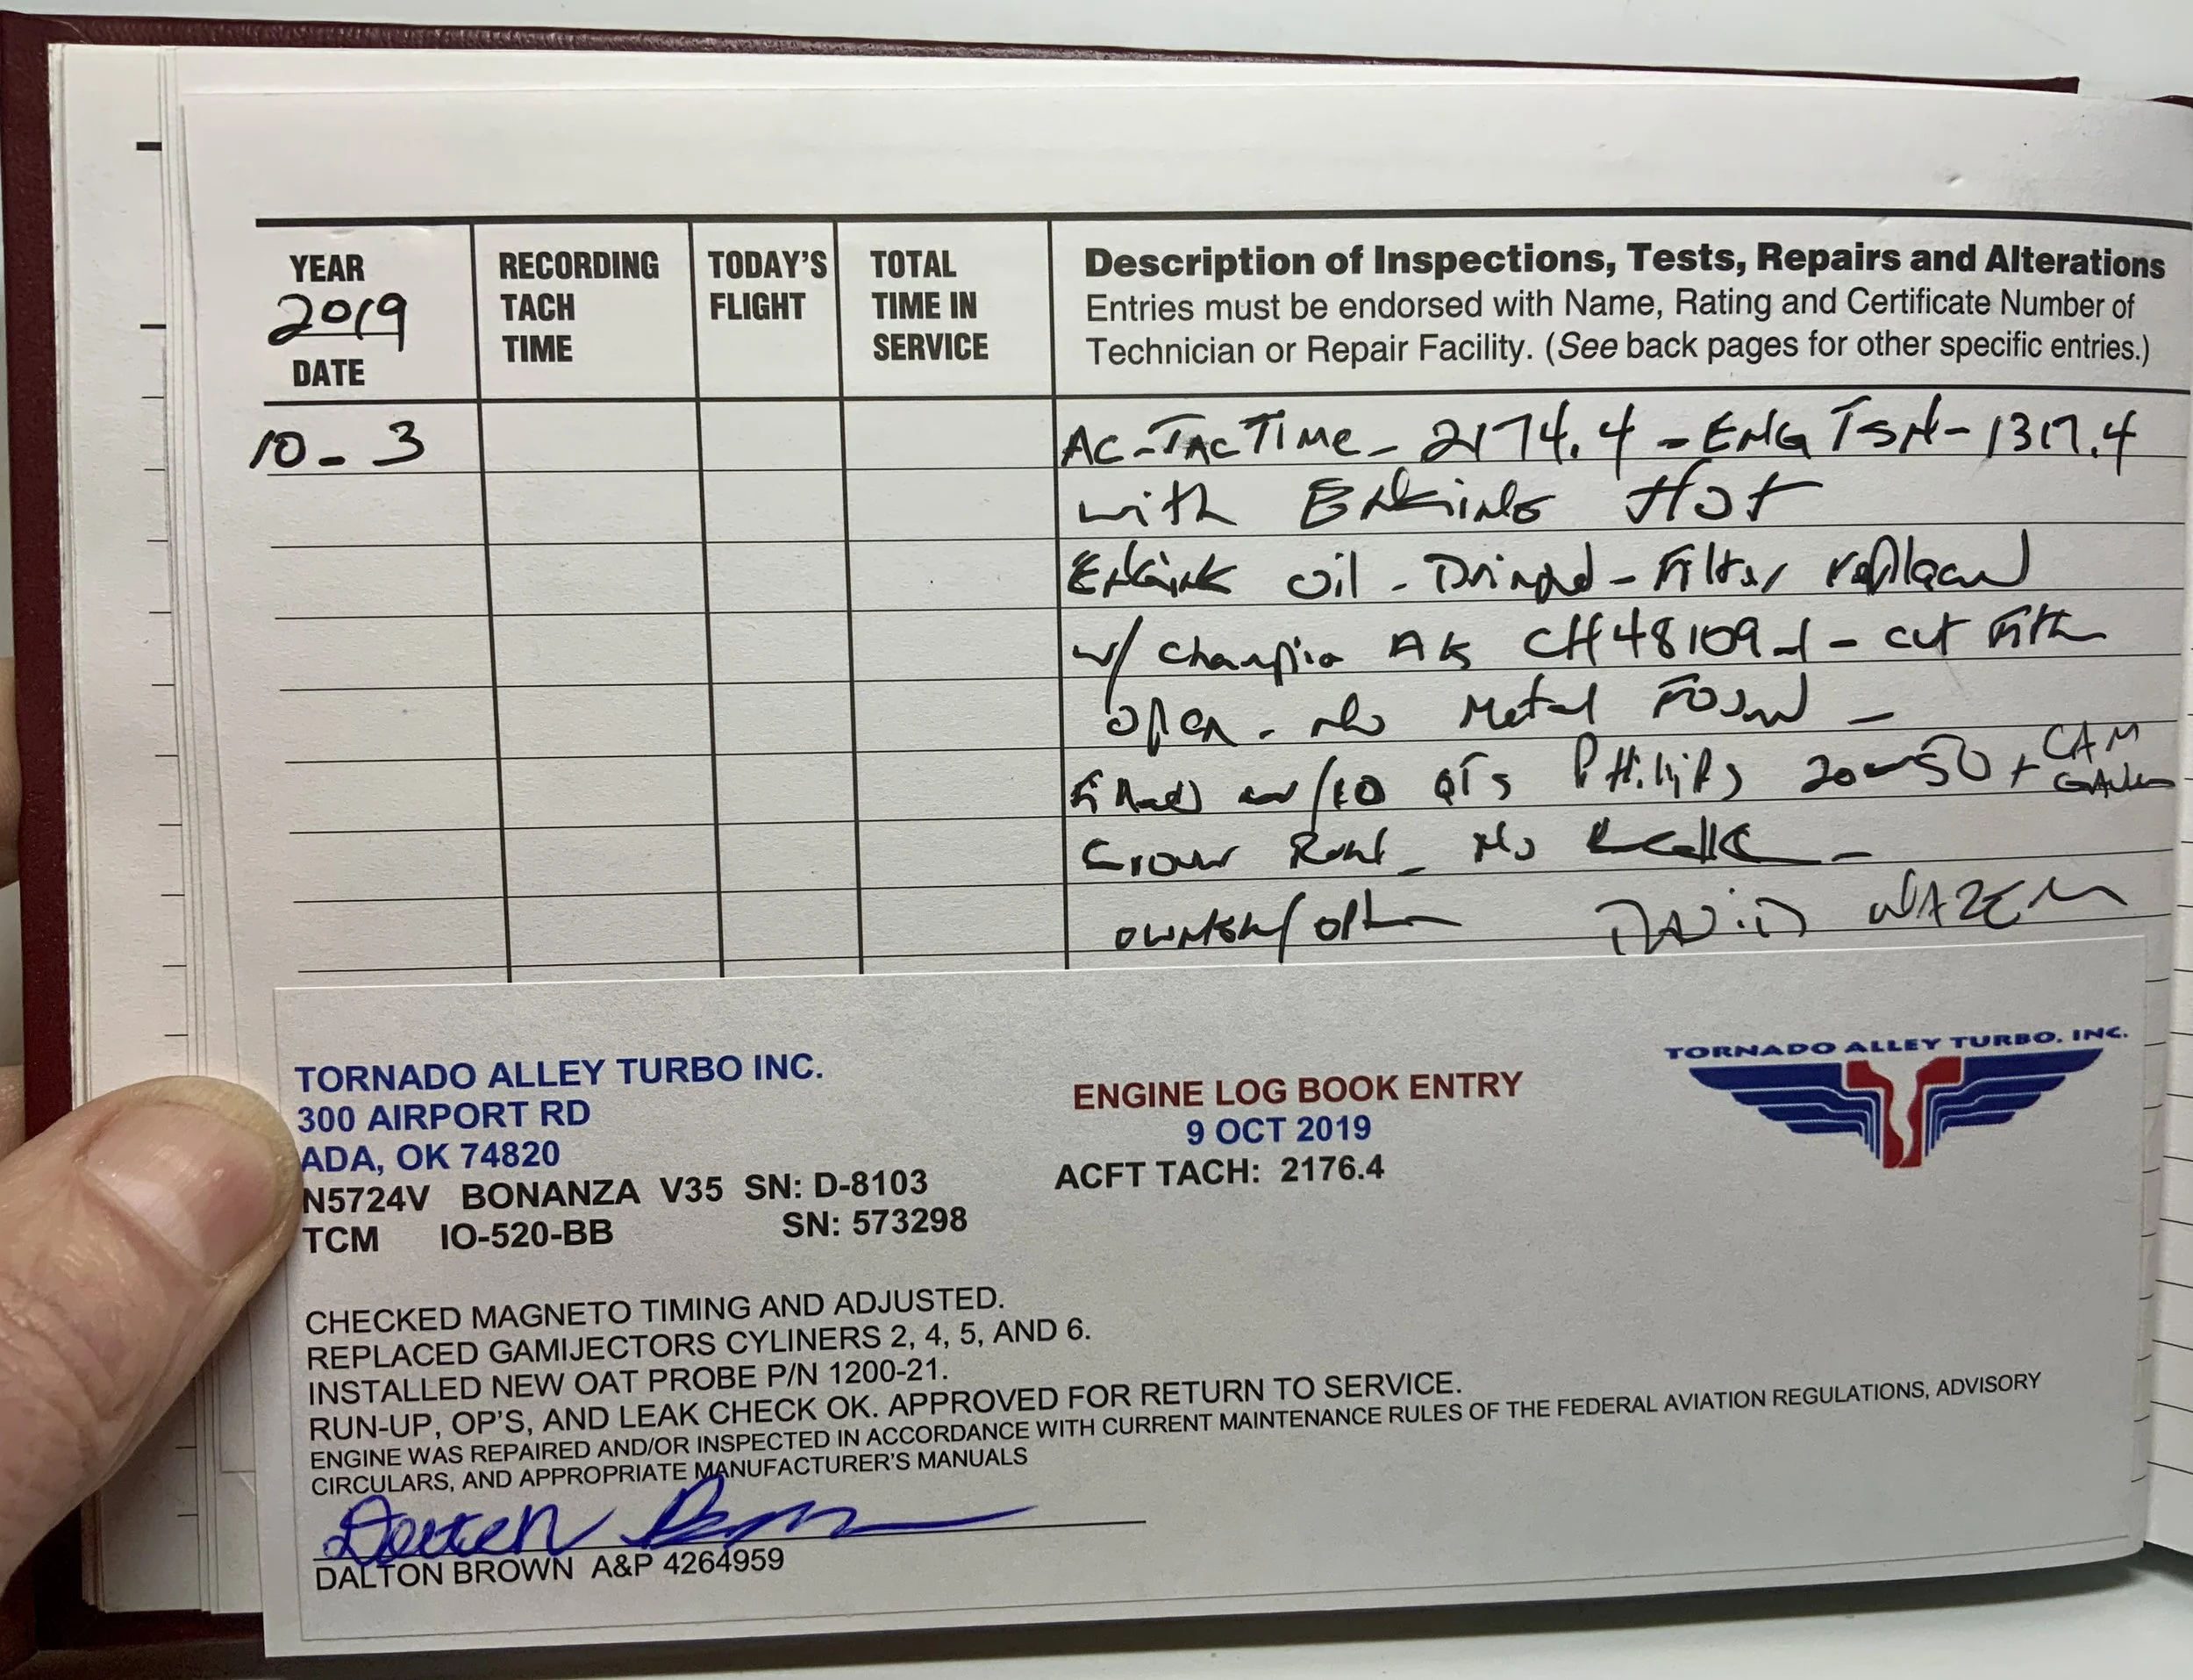 YEAR
2019
DATE
RECORDING
TACH
TIME
TODAY'S
FLIGHT
TOTAL
TIME IN
SERVICE
Description of Inspections, Tests, Repairs and Alterations
Entries must be endorsed with Name, Rating and Certificate Number of
Technician or Repair Facility. (See back pages for other specific entries.)
10-3
AC-TAC TIME - 2174.4 - ENG TSN - 1317.4
with Hot
oil - - Filter replaced
w/ Champion CH48109-1 - cut Filter
open - No Metal Found -
Filled w/10 QTS Phillips 20W50 + CAM
Ground - No -
owner/ DAVID
TORNADO ALLEY TURBO INC.
300 AIRPORT RD
ADA, OK 74820
N5724V BONANZA V35 SN: D-8103
TCM IO-520-BB SN: 573298
ENGINE LOG BOOK ENTRY
9 OCT 2019
ACFT TACH: 2176.4
TORNADO ALLEY TURBO, INC.
CHECKED MAGNETO TIMING AND ADJUSTED.
REPLACED GAMIJECTORS CYLINERS 2, 4, 5, AND 6.
INSTALLED NEW OAT PROBE P/N 1200-21.
RUN-UP, OP'S, AND LEAK CHECK OK. APPROVED FOR RETURN TO SERVICE.
ENGINE WAS REPAIRED AND/OR INSPECTED IN ACCORDANCE WITH CURRENT MAINTENANCE RULES OF THE FEDERAL AVIATION REGULATIONS, ADVISORY
CIRCULARS, AND APPROPRIATE MANUFACTURER'S MANUALS
DALTON BROWN A&P 4264959